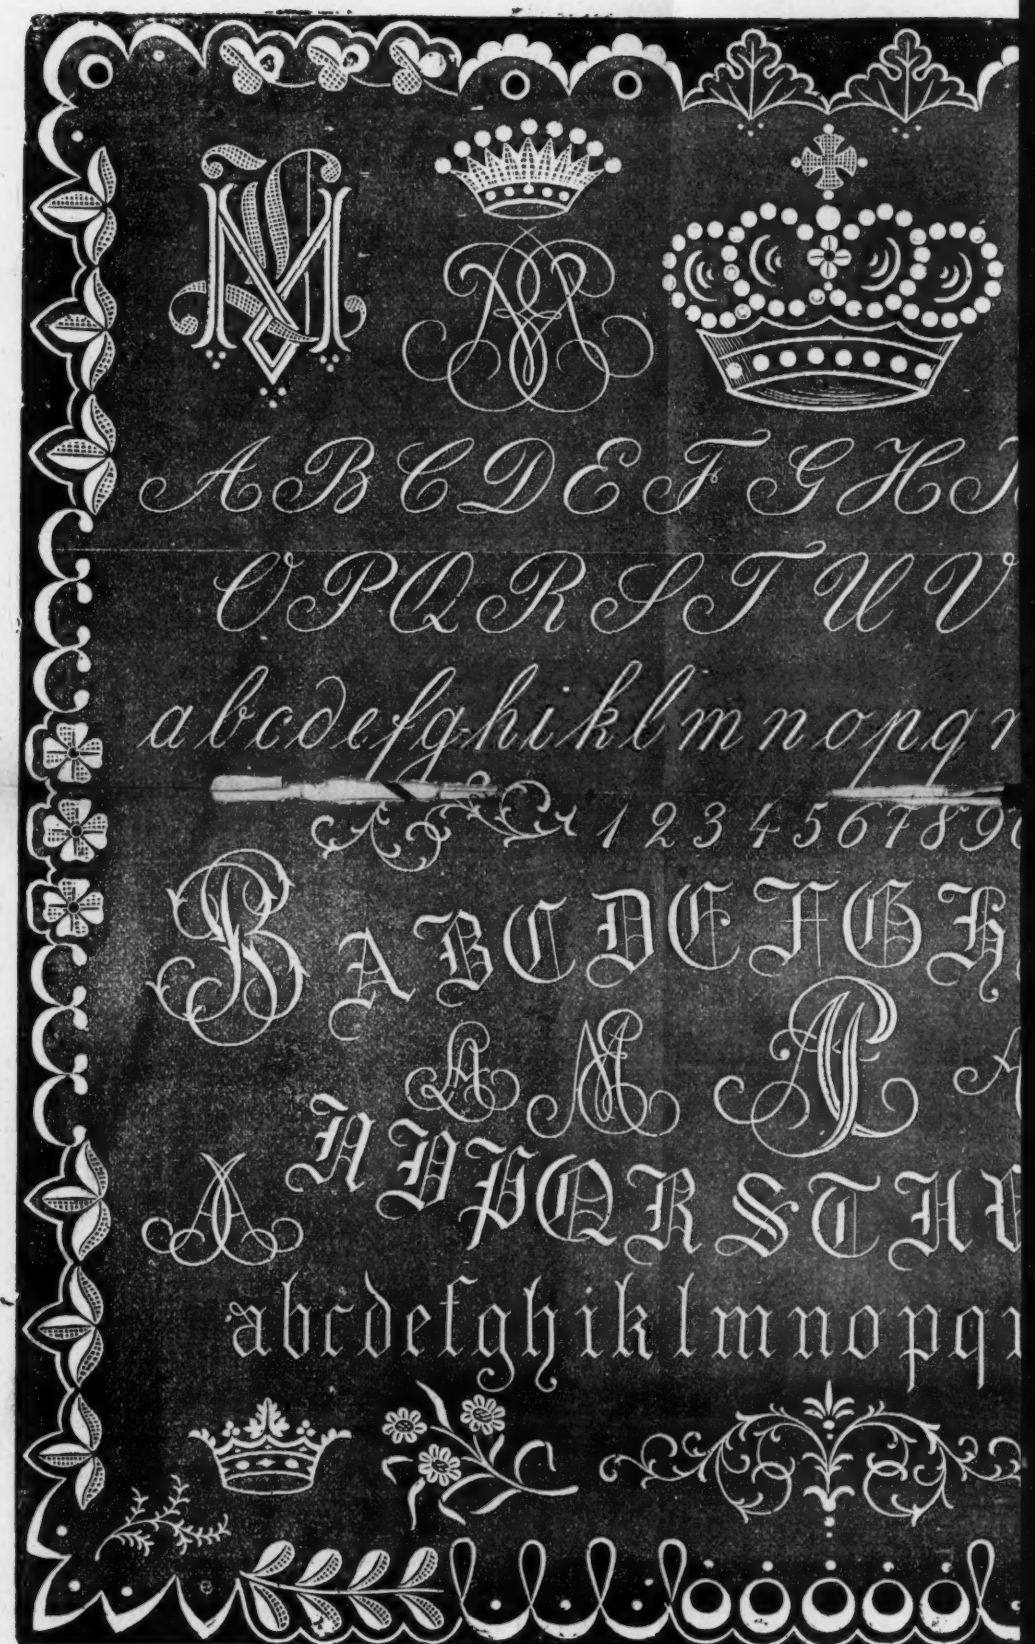 A B C D E F G H
O P Q R S T U V
a b c d e f g h i k l m n o p q r
1 2 3 4 5 6 7 8 9 0
B A B C D E F G H
N O P Q R S T U
a b c d e f g h i k l m n o p q r